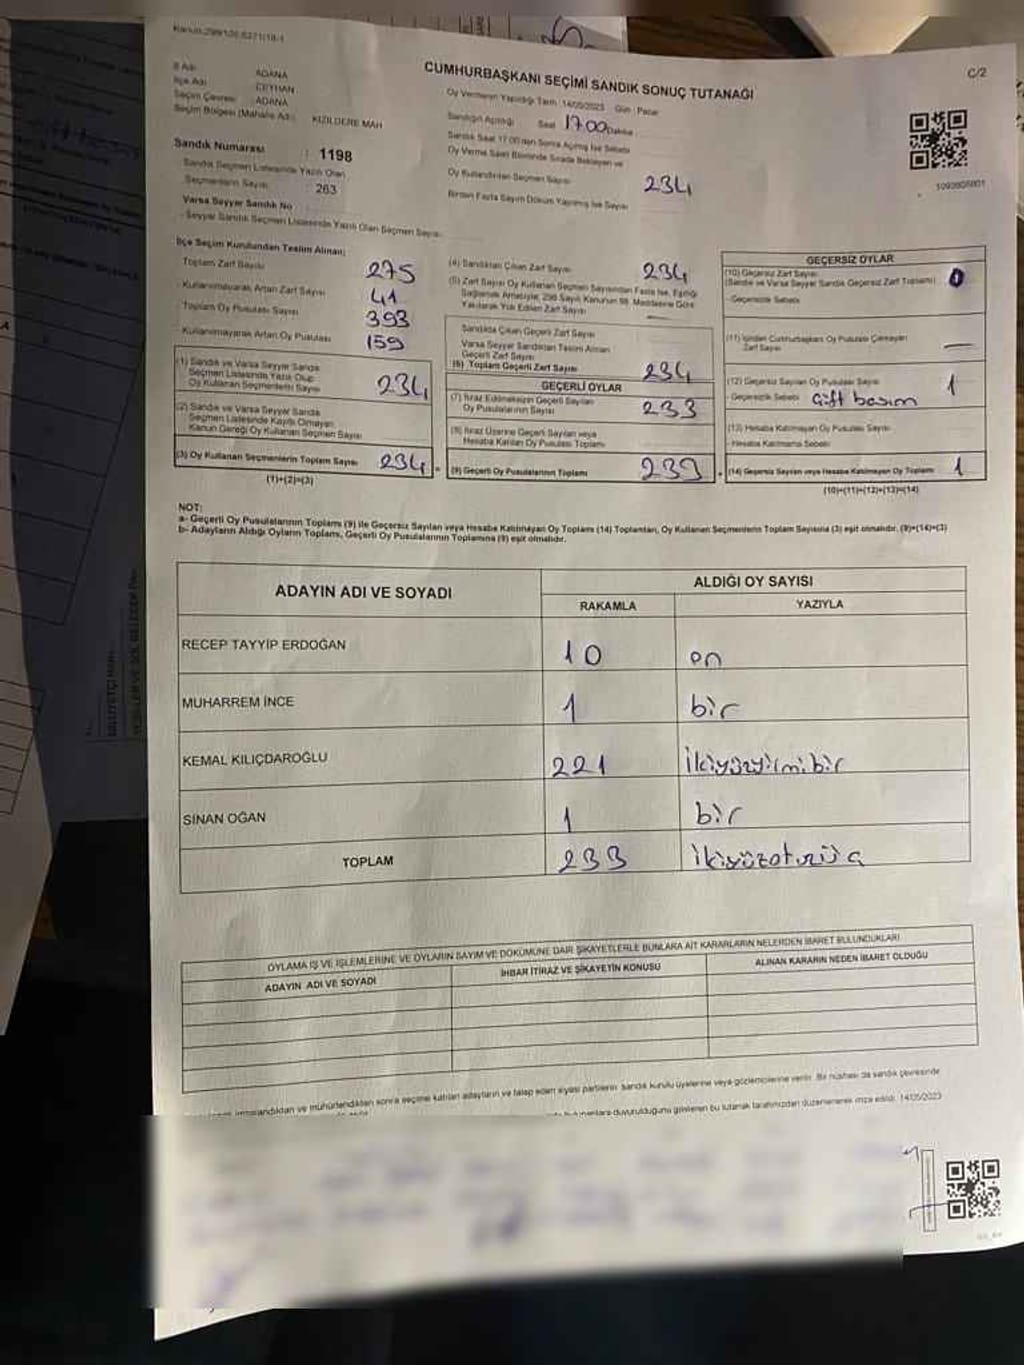 Kanun:298/105,6271/18-1
C/2
CUMHURBAŞKANI SEÇİMİ SANDIK SONUÇ TUTANAĞI
İl Adı ADANA
İlçe Adı CEYHAN
Seçim Çevresi ADANA
Seçim Bölgesi (Mahalle Adı) KIZILDERE MAH
Sandık Numarası : 1198
Sandık Seçmen Listesinde Yazılı Olan
Seçmenlerin Sayısı : 263
Varsa Seyyar Sandık No
- Seyyar Sandık Seçmen Listesinde Yazılı Olan Seçmen Sayısı
Oy Vermenin Yapıldığı Tarih : 14/05/2023 Gün : Pazar
Sandığın Açıldığı Saat 17.00 Dakika
Sandık Saat 17.00'den Sonra Açılmış İse Sebebi
Oy Verme Saati Bitiminde Sırada Bekleyen ve
Oy Kullandırılan Seçmen Sayısı 234
Birden Fazla Sayım Döküm Yapılmış İse Sayısı
İlçe Seçim Kurulundan Teslim Alınan;
Toplam Zarf Sayısı 275
- Kullanılmayarak Artan Zarf Sayısı 41
Toplam Oy Pusulası Sayısı 393
- Kullanılmayarak Artan Oy Pusulası 159
(1) Sandık ve Varsa Seyyar Sandık
Seçmen Listesinde Yazılı Olup
Oy Kullanan Seçmenlerin Sayısı 234
(2) Sandık ve Varsa Seyyar Sandık
Seçmen Listesinde Kayıtlı Olmayan
Kanun Gereği Oy Kullanan Seçmen Sayısı
(3) Oy Kullanan Seçmenlerin Toplam Sayısı 234
(1)+(2)=(3)
(4) Sandıktan Çıkan Zarf Sayısı 234
(5) Zarf Sayısı Oy Kullanan Seçmen Sayısından Fazla İse, Eşitliği
Sağlamak Amacıyla; 298 Sayılı Kanunun 98. Maddesine Göre
Yakılarak Yok Edilen Zarf Sayısı —
Sandıkta Çıkan Geçerli Zarf Sayısı
Varsa Seyyar Sandıktan Teslim Alınan
Geçerli Zarf Sayısı
(6) Toplam Geçerli Zarf Sayısı 234
GEÇERLİ OYLAR
(7) İtiraz Edilmeksizin Geçerli Sayılan
Oy Pusulasının Sayısı 233
(8) İtiraz Üzerine Geçerli Sayılan veya
Hesaba Katılan Oy Pusulası Toplamı
(9) Geçerli Oy Pusulalarının Toplamı 233
GEÇERSİZ OYLAR
(10) Geçersiz Zarf Sayısı
(Sandık ve Varsa Seyyar Sandık Geçersiz Zarf Toplamı)
- Geçersizlik Sebebi
(11) İçinden Cumhurbaşkanı Oy Pusulası Çıkmayan
Zarf Sayısı —
(12) Geçersiz Sayılan Oy Pusulası Sayısı 1
- Geçersizlik Sebebi Çift basım
(13) Hesaba Katılmayan Oy Pusulası Sayısı
- Hesaba Katılmama Sebebi
(14) Geçersiz Sayılan veya Hesaba Katılmayan Oy Toplamı 1
(10)+(11)+(12)+(13)=(14)
NOT:
a- Geçerli Oy Pusulalarının Toplamı (9) ile Geçersiz Sayılan veya Hesaba Katılmayan Oy Toplamı (14) Toplamları, Oy Kullanan Seçmenlerin Toplam Sayısına (3) eşit olmalıdır. (9)+(14)=(3)
b- Adayların Aldığı Oyların Toplamı, Geçerli Oy Pusulalarının Toplamına (9) eşit olmalıdır.
ADAYIN ADI VE SOYADI ALDIĞI OY SAYISI
RAKAMLA YAZIYLA
RECEP TAYYİP ERDOĞAN 10 on
MUHARREM İNCE 1 bir
KEMAL KILIÇDAROĞLU 221 ikiyüzyirmibir
SİNAN OĞAN 1 bir
TOPLAM 233 ikiyüzotuzüç
OYLAMA İŞ VE İŞLEMLERİNE VE OYLARIN SAYIM VE DÖKÜMÜNE DAİR ŞİKAYETLERLE BUNLARA AİT KARARLARIN NELERDEN İBARET BULUNDUKLARI
ADAYIN ADI VE SOYADI İHBAR İTİRAZ VE ŞİKAYETİN KONUSU ALINAN KARARIN NEDEN İBARET OLDUĞU
imzalandıktan ve mühürlendikten sonra seçime katılan adayların ve talep eden siyasi partilerin sandık kurulu üyelerine veya gözlemcilerine verilir. Bir nüshası da sandık çevresinde
duyurulduğunu gösteren bu tutanak tarafımızdan düzenlenerek imza edildi. 14/05/2023